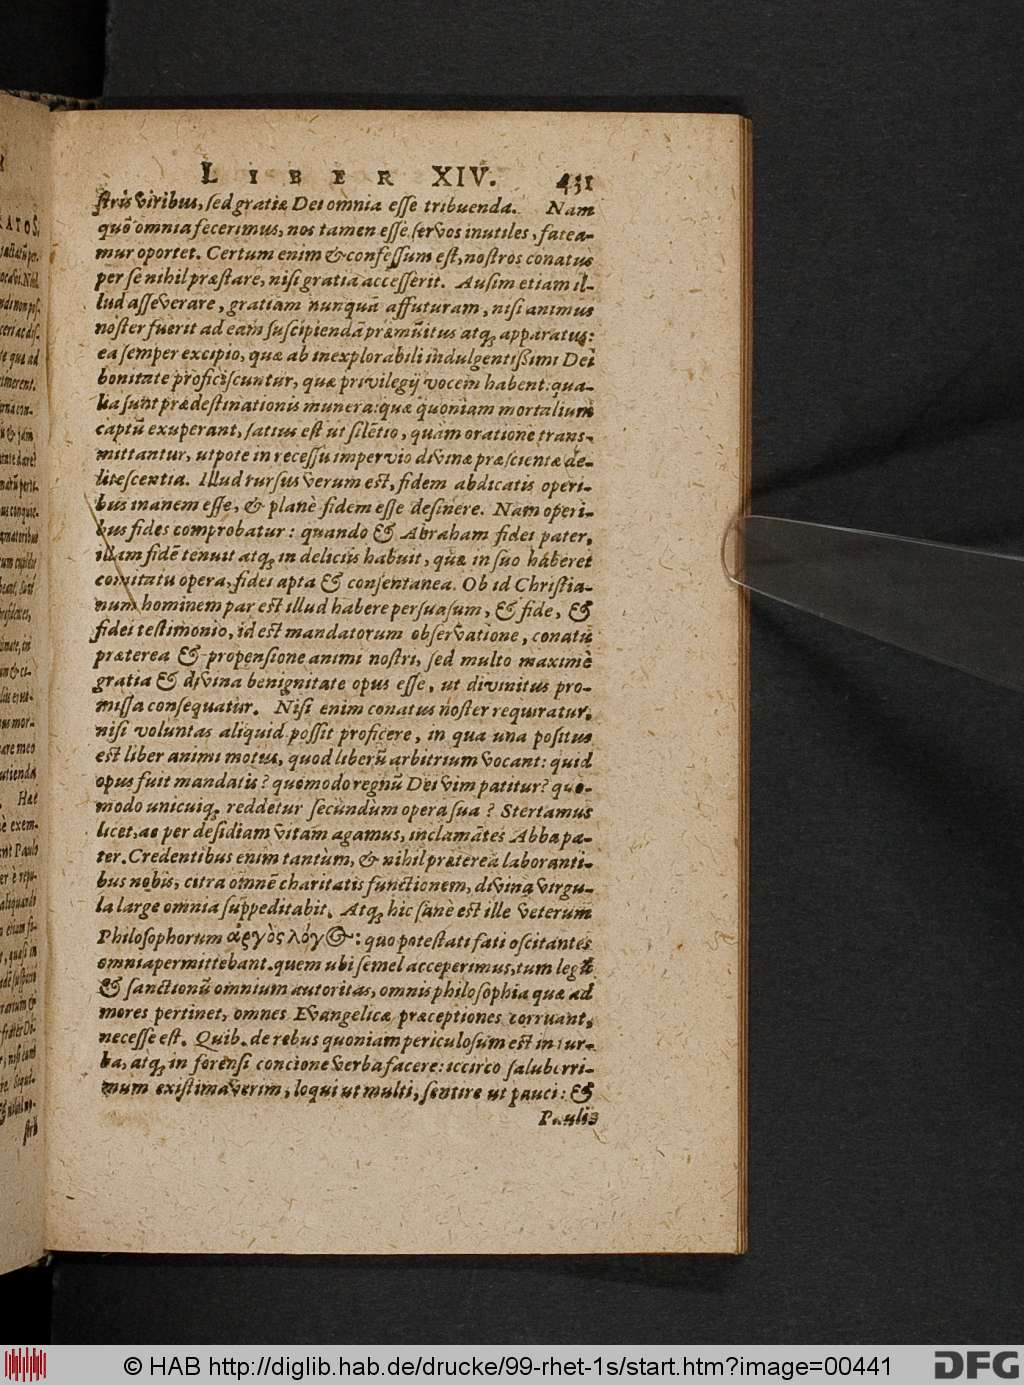 LIBER XIV. 431
ſtris viribus, ſed gratiæ Dei omnia eſſe tribuenda. Nam
quō omnia fecerimus, nos tamen eſſe ſervos inutiles, fatea-
mur oportet. Certum enim & confeſſum eſt, noſtros conatus
per ſe nihil præſtare, niſi gratia acceſſerit. Auſim etiam il-
lud aſſeverare, gratiam nunquā affuturam, niſi animus
noſter fuerit ad eam ſuſcipiendā præmūitus atq; apparatus:
ea ſemper excipio, quæ ab inexplorabili indulgentißimi Dei
bonitate proficiſcuntur, quæ privilegij vocem habent: qua-
lia ſunt prædeſtinationis munera: quæ quoniam mortalium
captū exuperant, ſatius eſt ut ſilētio, quàm oratione trans-
mittantur, utpote in receſſu impervio divinæ præſcientæ de-
liteſcentia. Illud rurſus verum eſt, fidem abdicatis operi-
bus inanem eſſe, & planè fidem eſſe deſinere. Nam operi-
bus fides comprobatur: quando & Abraham fidei pater,
illam fidē tenuit atq; in deliciis habuit, quæ in ſuo haberet
comitatu opera, fidei apta & conſentanea. Ob id Chriſtia-
num hominem par eſt illud habere perſuaſum, & fide, &
fidei teſtimonio, id eſt mandatorum obſervatione, conatū
præterea & propenſione animi noſtri, ſed multo maximè
gratia & divina benignitate opus eſſe, ut divinitus pro-
miſſa conſequatur. Niſi enim conatus noſter requiratur,
niſi voluntas aliquid poſſit proficere, in qua una poſitus
eſt liber animi motus, quod liberū arbitrium vocant: quid
opus fuit mandatis? quomodo regnū Dei vim patitur? quo-
modo unicuiq; reddetur ſecundum opera ſua? Stertamus
licet, ac per deſidiam vitam agamus, inclamātes Abba pa-
ter. Credentibus enim tantùm, & nihil præterea laboranti-
bus nobis, citra omnē charitatis functionem, divina virgu-
la large omnia ſuppeditabit. Atq; hic ſanè eſt ille veterum
Philoſophorum ἀργὸς λόγος: quo poteſtati fati oſcitantes
omnia permittebant. quem ubi ſemel acceperimus, tum legū
& ſanctionū omnium autoritas, omnis philoſophia quæ ad
mores pertinet, omnes Evangelicæ præceptiones corruant,
neceſſe eſt. Quib. de rebus quoniam periculoſum eſt in tur-
ba, atq; in forenſi concione verba facere: iccirco ſaluberri-
mum exiſtimaverim, loqui ut multi, ſentire ut pauci: &
Paulis
© HAB http://diglib.hab.de/drucke/99-rhet-1s/start.htm?image=00441
DFG